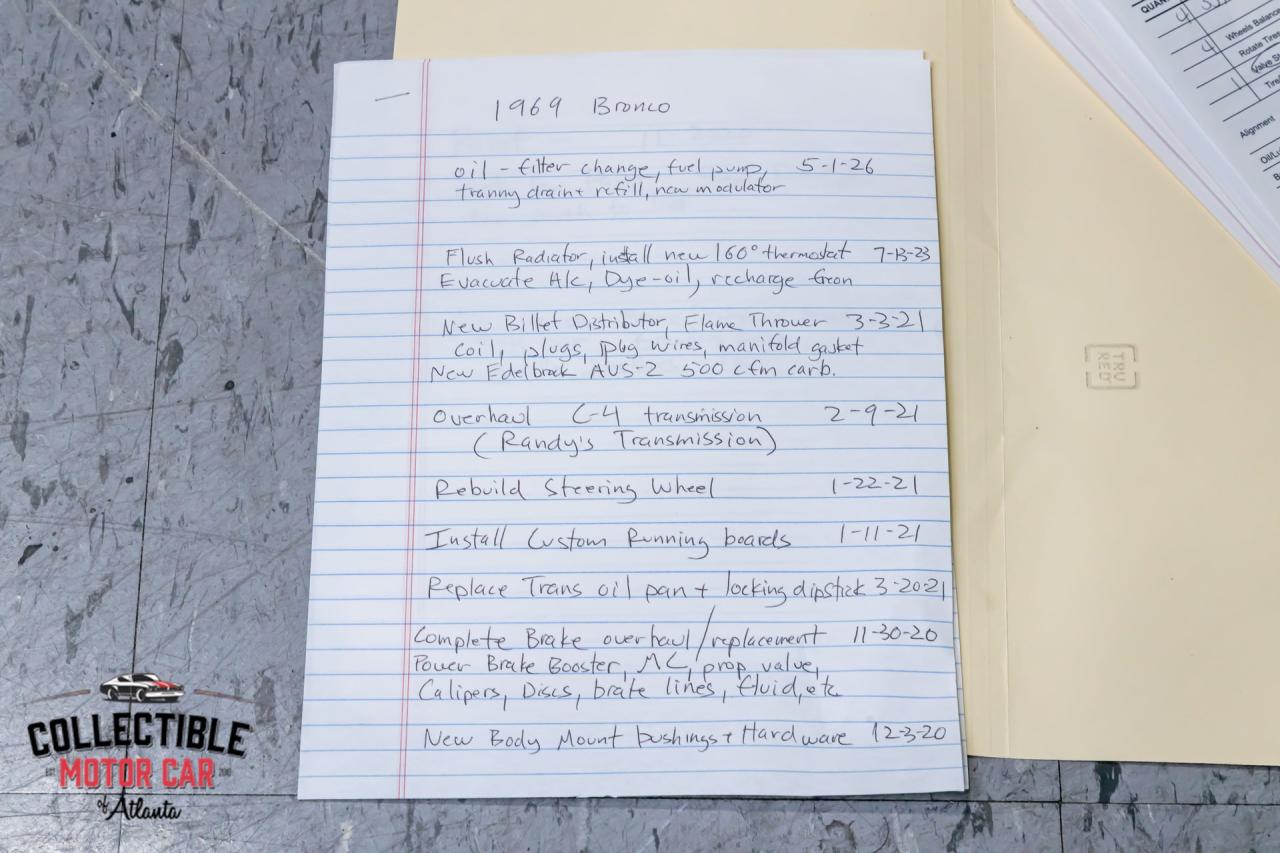 1969 Bronco
oil - filter change, fuel pump, 5-1-26
tranny drain + refill, new modulator
Flush Radiator, install new 160° thermostat 7-13-23
Evacuate A/c, Dye-oil, recharge freon
New Billet Distributor, Flame Thrower 3-3-21
coil, plugs, plug wires, manifold gasket
New Edelbrock AVS-2 500 cfm carb.
Overhaul C-4 transmission 2-9-21
(Randy's Transmission)
Rebuild Steering Wheel 1-22-21
Install Custom Running boards 1-11-21
Replace Trans oil pan + locking dipstick 3-20-21
Complete Brake overhaul/replacement 11-30-20
Power Brake Booster, MC, prop valve,
Calipers, Discs, brake lines, fluid, etc
New Body Mount bushings + Hardware 12-3-20
QUAN
4
Wheels Balan
4
Rotate Tires
1
Valve St
Tire
Alignment
TRU
RED
COLLECTIBLE
MOTOR CAR
of Atlanta